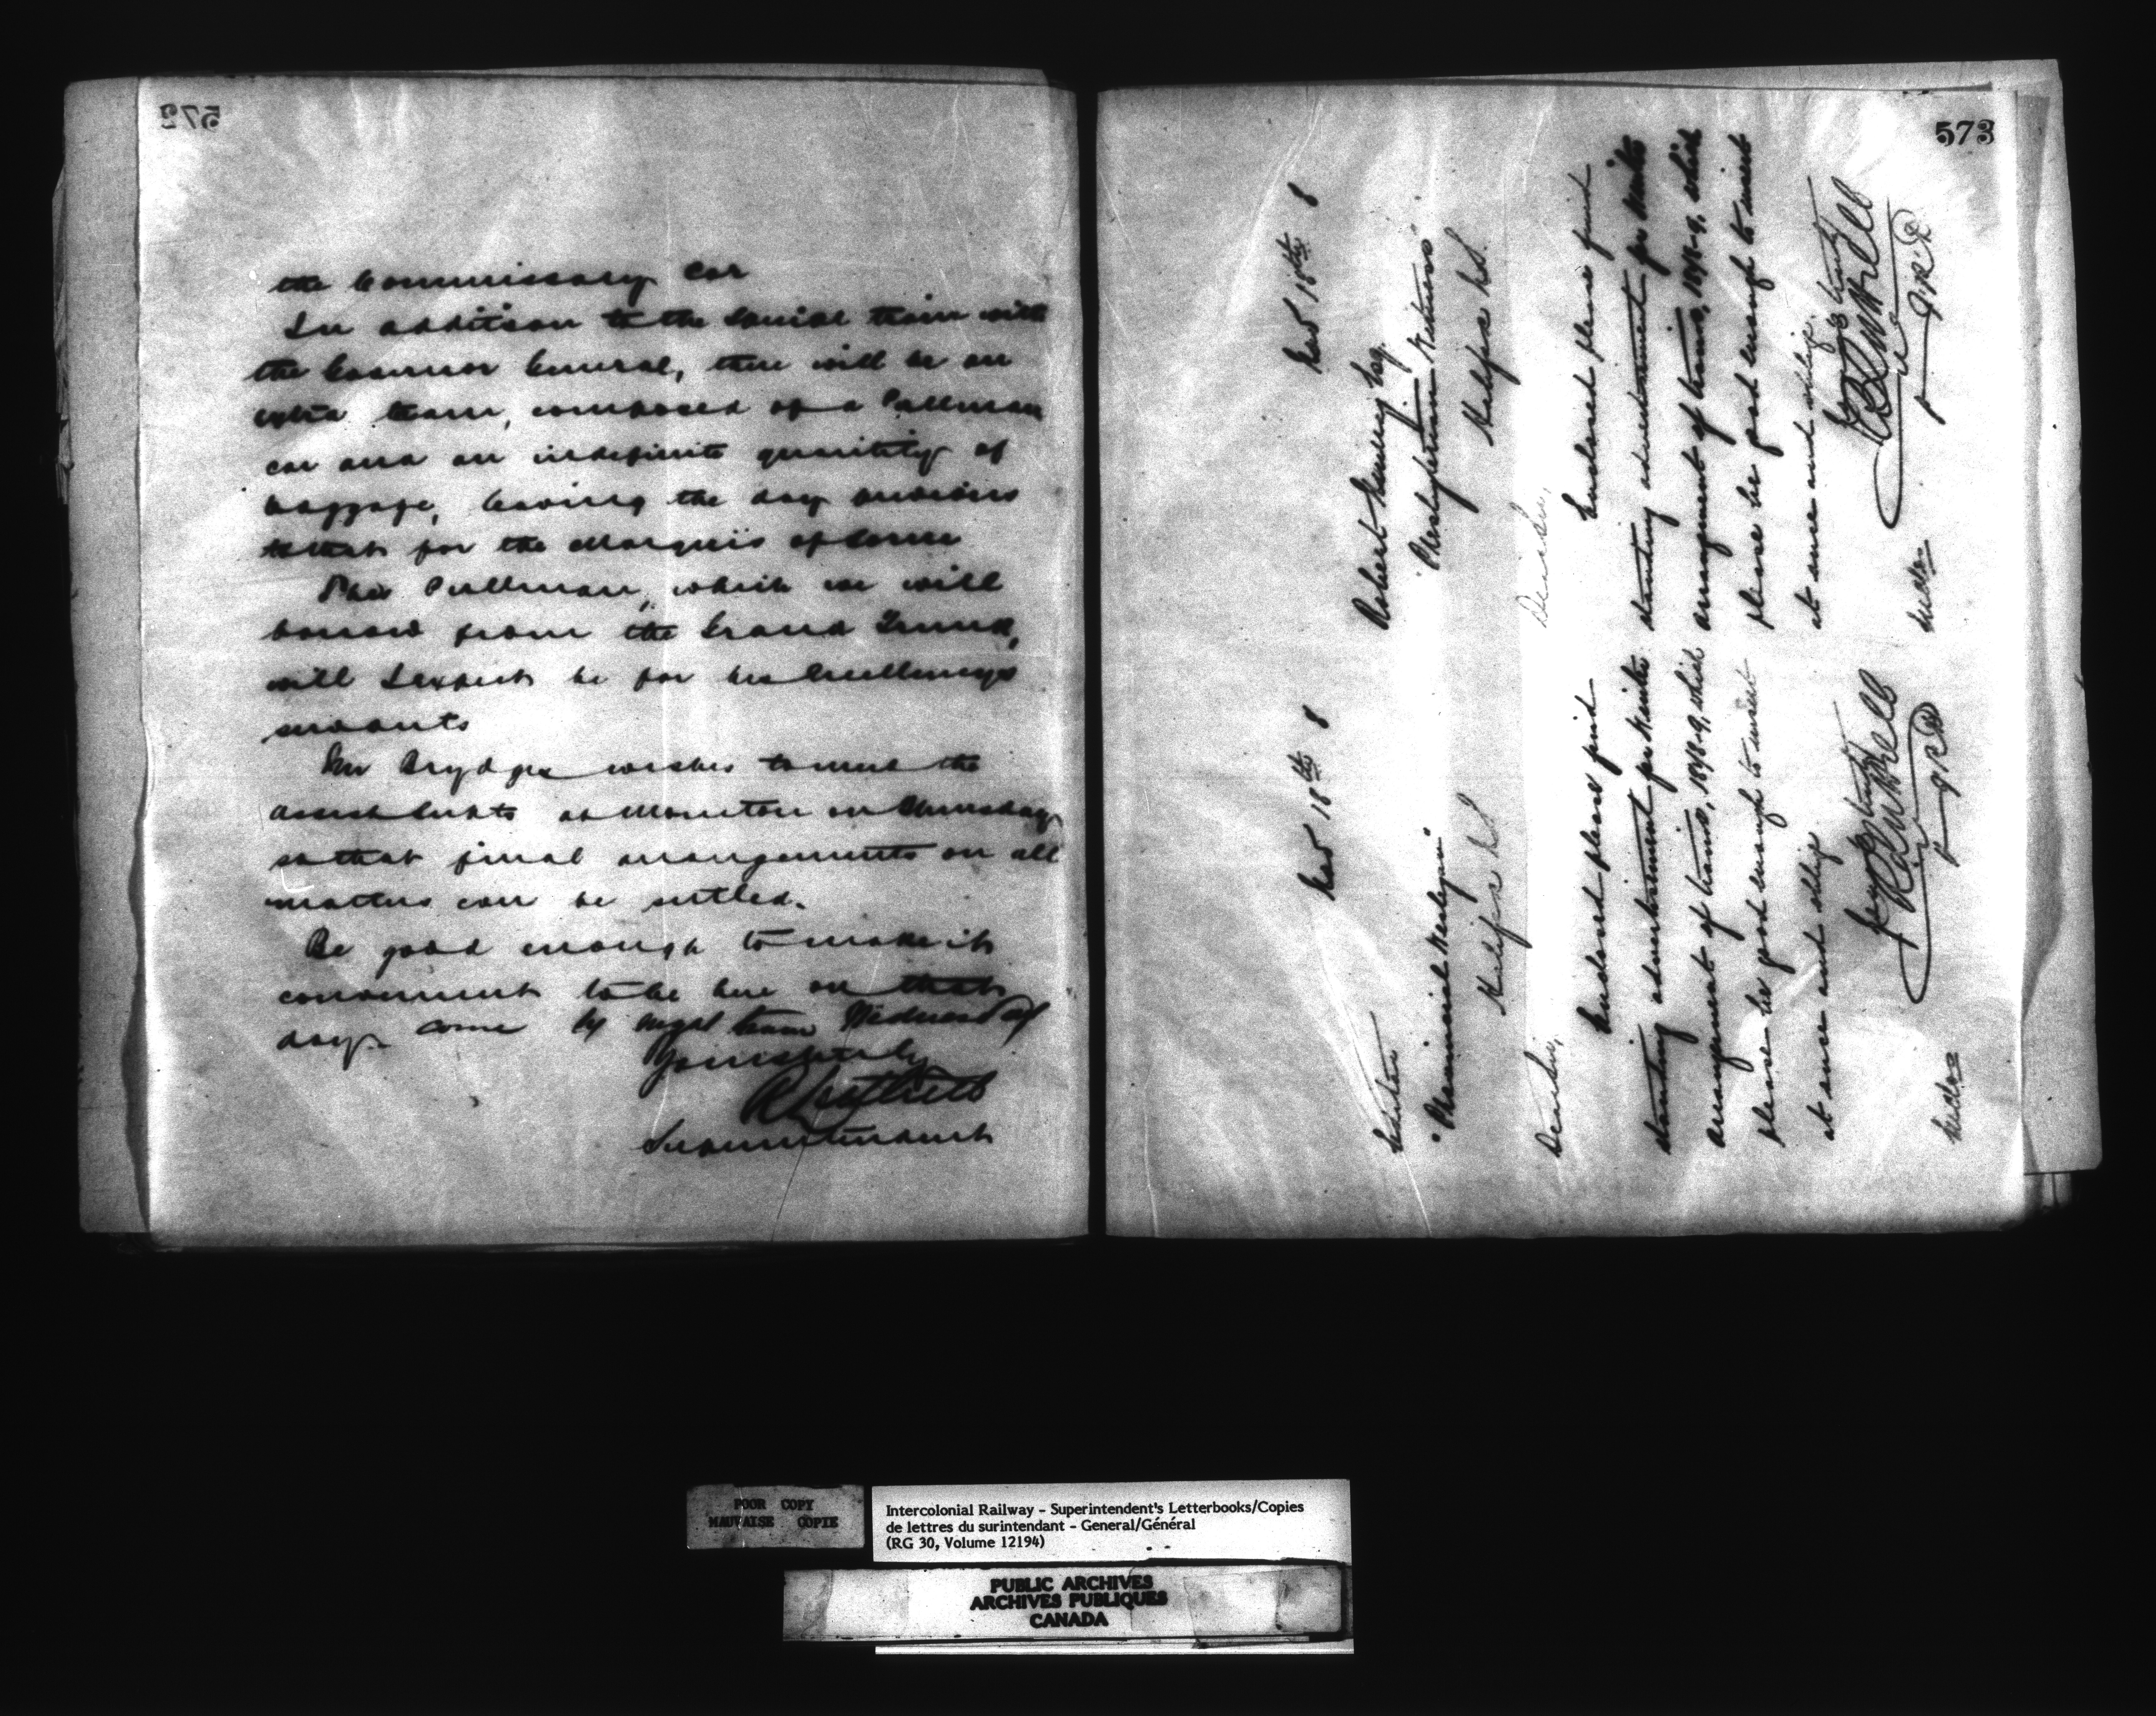 572
the Commissary Car
In addition to the Special train with
the Governor General, there will be an
extra train, composed of a Pullman
car and an indefinite quantity of
baggage, leaving the day previous
to that for the Marquis of Lorne
This Pullman, which we will
borrow from the Grand Trunk,
will I expect be for his Excellencys
servants
Mr Brydges wishes to meet the
Assist Supts at Moncton on Thursday
so that final arrangements on all
matters can be settled.
Be good enough to make it
convenient to be here on that
day come by night train Wednesday
Yours truly
Superintendent
573
Nov 18th 8
Editor
"Provincial Wesleyan"
Halifax N.S.
Dear Sir,
Enclosed please find
standing advertisement for Winter
arrangement of trains, 1878-9, which
please be good enough to insert
at once and oblige
Yours truly
Nov 18th 8
Robert Murray Esq.
"Presbyterian Witness"
Halifax N.S.
Dear Sir,
Enclosed please find
standing advertisement for Winter
arrangement of trains, 1878-9, which
please be good enough to insert
at once and oblige.
Yours truly
POOR COPY
MAUVAISE COPIE
Intercolonial Railway - Superintendent's Letterbooks/Copies
de lettres du surintendant - General/Général
(RG 30, Volume 12194)
PUBLIC ARCHIVES
ARCHIVES PUBLIQUES
CANADA